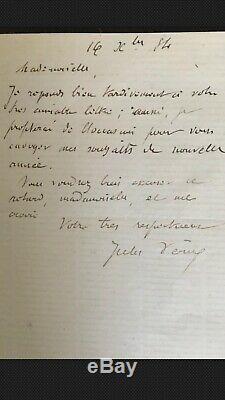 16 Xbre 84
Mademoiselle,
Je réponds bien tardivement à votre
très aimable lettre; aussi, je
profiterai de l'occasion pour vous
envoyer mes souhaits de nouvelle
année.
Vous voudrez bien excuser ce
retard, mademoiselle, et me
croire
Votre très respectueux
Jules Verne